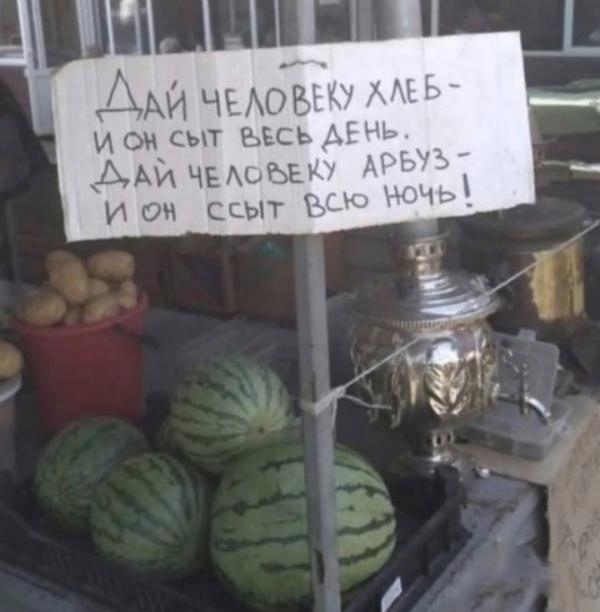 ДАЙ ЧЕЛОВЕКУ ХЛЕБ -
И ОН СЫТ ВЕСЬ ДЕНЬ.
ДАЙ ЧЕЛОВЕКУ АРБУЗ -
И ОН ССЫТ ВСЮ НОЧЬ!